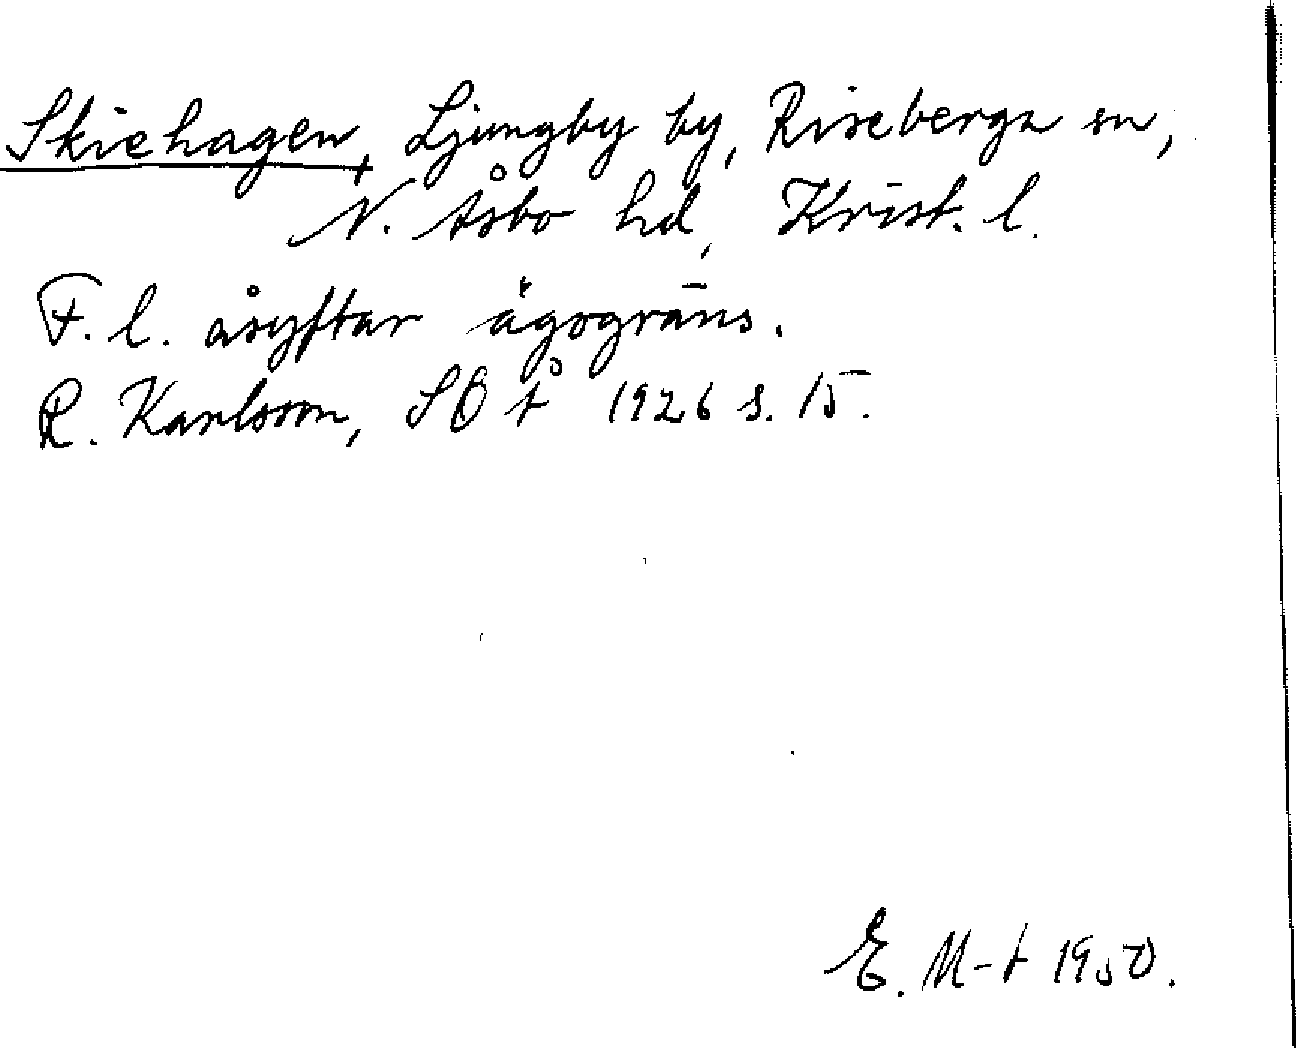 Skiehagen, Ljungby by, Riseberga sn,
N. Åsbo hd, Krist. l.
F. l. åsyftar ägogräns.
R. Karlsson, SOÅ 1926 s. 15.
E. M-t 1950.